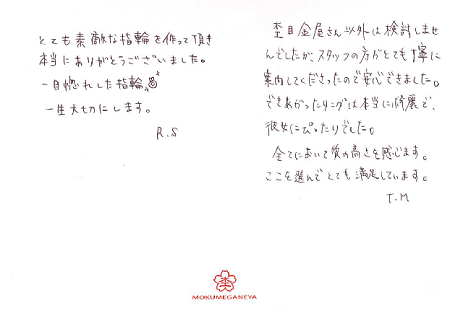 とても素敵な指輪を作って頂き
本当にありがとうございました。
一目惚れした指輪
一生大切にします。
R.S
杢目金屋さん以外は検討しませ
んでしたが、スタッフの方がとても丁寧に
案内してくださったので安心できました。
できあがったリングは本当に綺麗で、
彼女にぴったりでした。
全てにおいて質の高さを感じます。
ここを選んでとても満足しています。
T.M
MOKUMEGANEYA